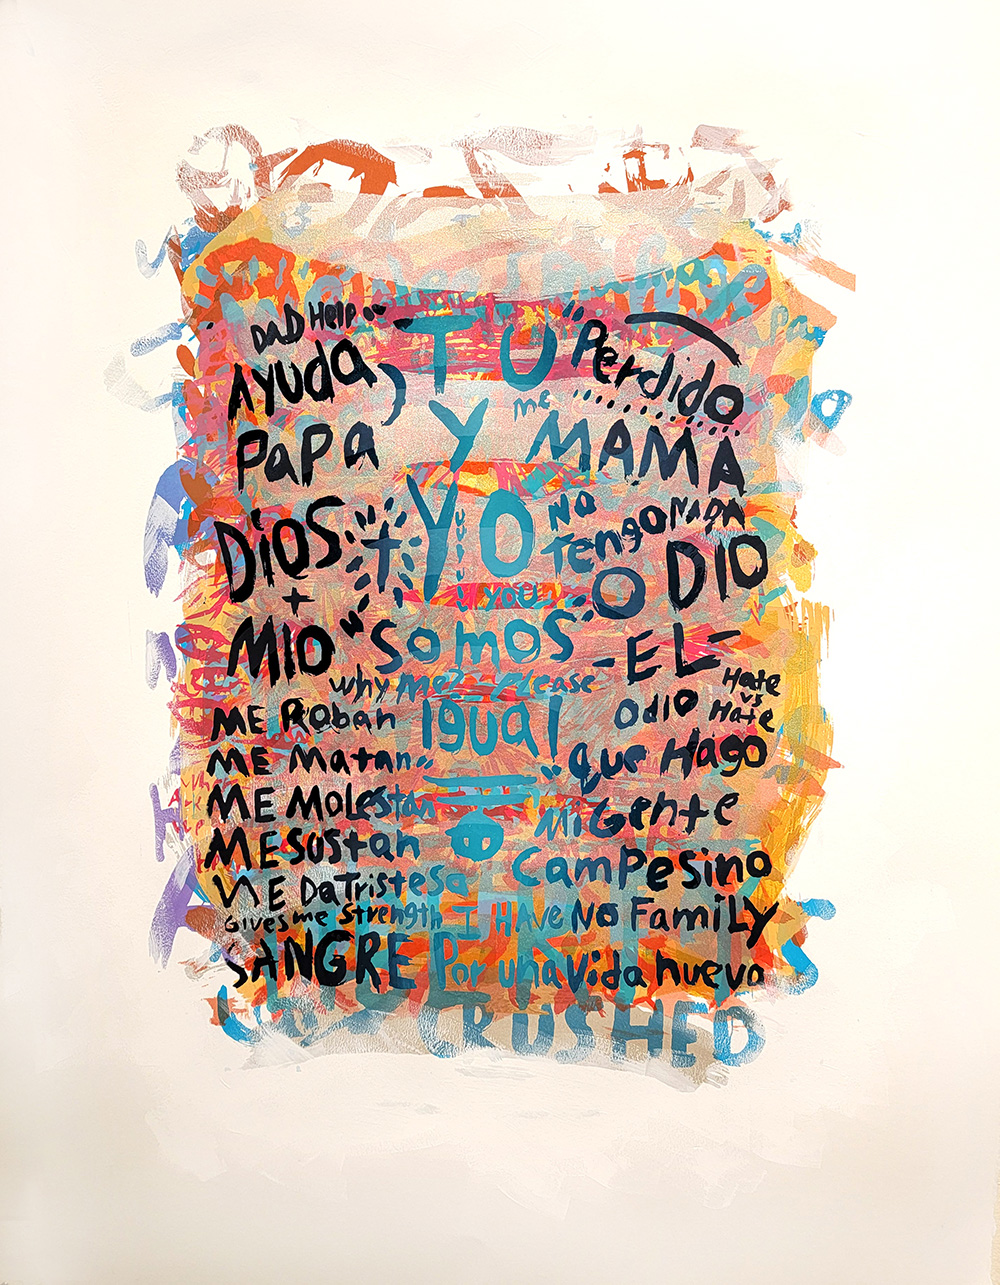 DaD Help
"TU"
Perdido
AYUDa,
me
Y
PaPa
MAMA
DIOS
YO
No
Tengo NADA
YOU
O DIO
+
MIO
"Somos"
-EL-
why Me? Please
Hate
vs
Hate
ME Roban
Igual
Odio
ME Matan
que Hago
ME MOLEStan
Mi Gente
ME SUStan
CamPesino
ME DaTristesa
Gives me Strength I HAVE No FamiLy
SANGRE Por una Vida nueva
CRUSHED